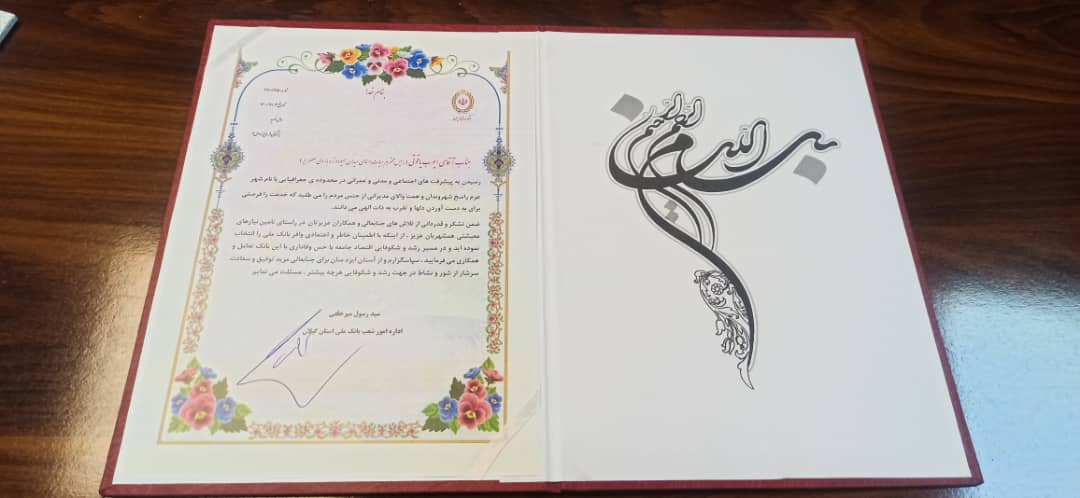 بنام خدا
جناب آقای ایوب یاقوتی
رسیدن به پیشرفت های اجتماعی و مدنی و عمرانی در محدوده ی جغرافیایی با نام شهر
عزم راسخ شهروندان و همت والای مدیرانی از جنس مردم را می طلبد که خدمت را فرصتی
برای به دست آوردن دلها و تقرب به ذات الهی می دانند.
ضمن تشکر و قدردانی از تلاش های جنابعالی و همکاران عزیزتان در راستای تامین نیازهای
معیشتی همشهریان عزیز ، از اینکه با اطمینان خاطر و اعتمادی وافر بانک ملی را انتخاب
نموده اید و در مسیر رشد و شکوفایی اقتصاد جامعه با حس وفاداری با این بانک تعامل و
همکاری می فرمایید ، سپاسگزارم و از آستان ایزد منان برای جنابعالی مزید توفیق و سعادت
سرشار از شور و نشاط در جهت رشد و شکوفایی هرچه بیشتر ، مسئلت می نمایم
سید رسول
اداره امور شعب بانک ملی استان گیلان
بسم الله الرحمن الرحیم